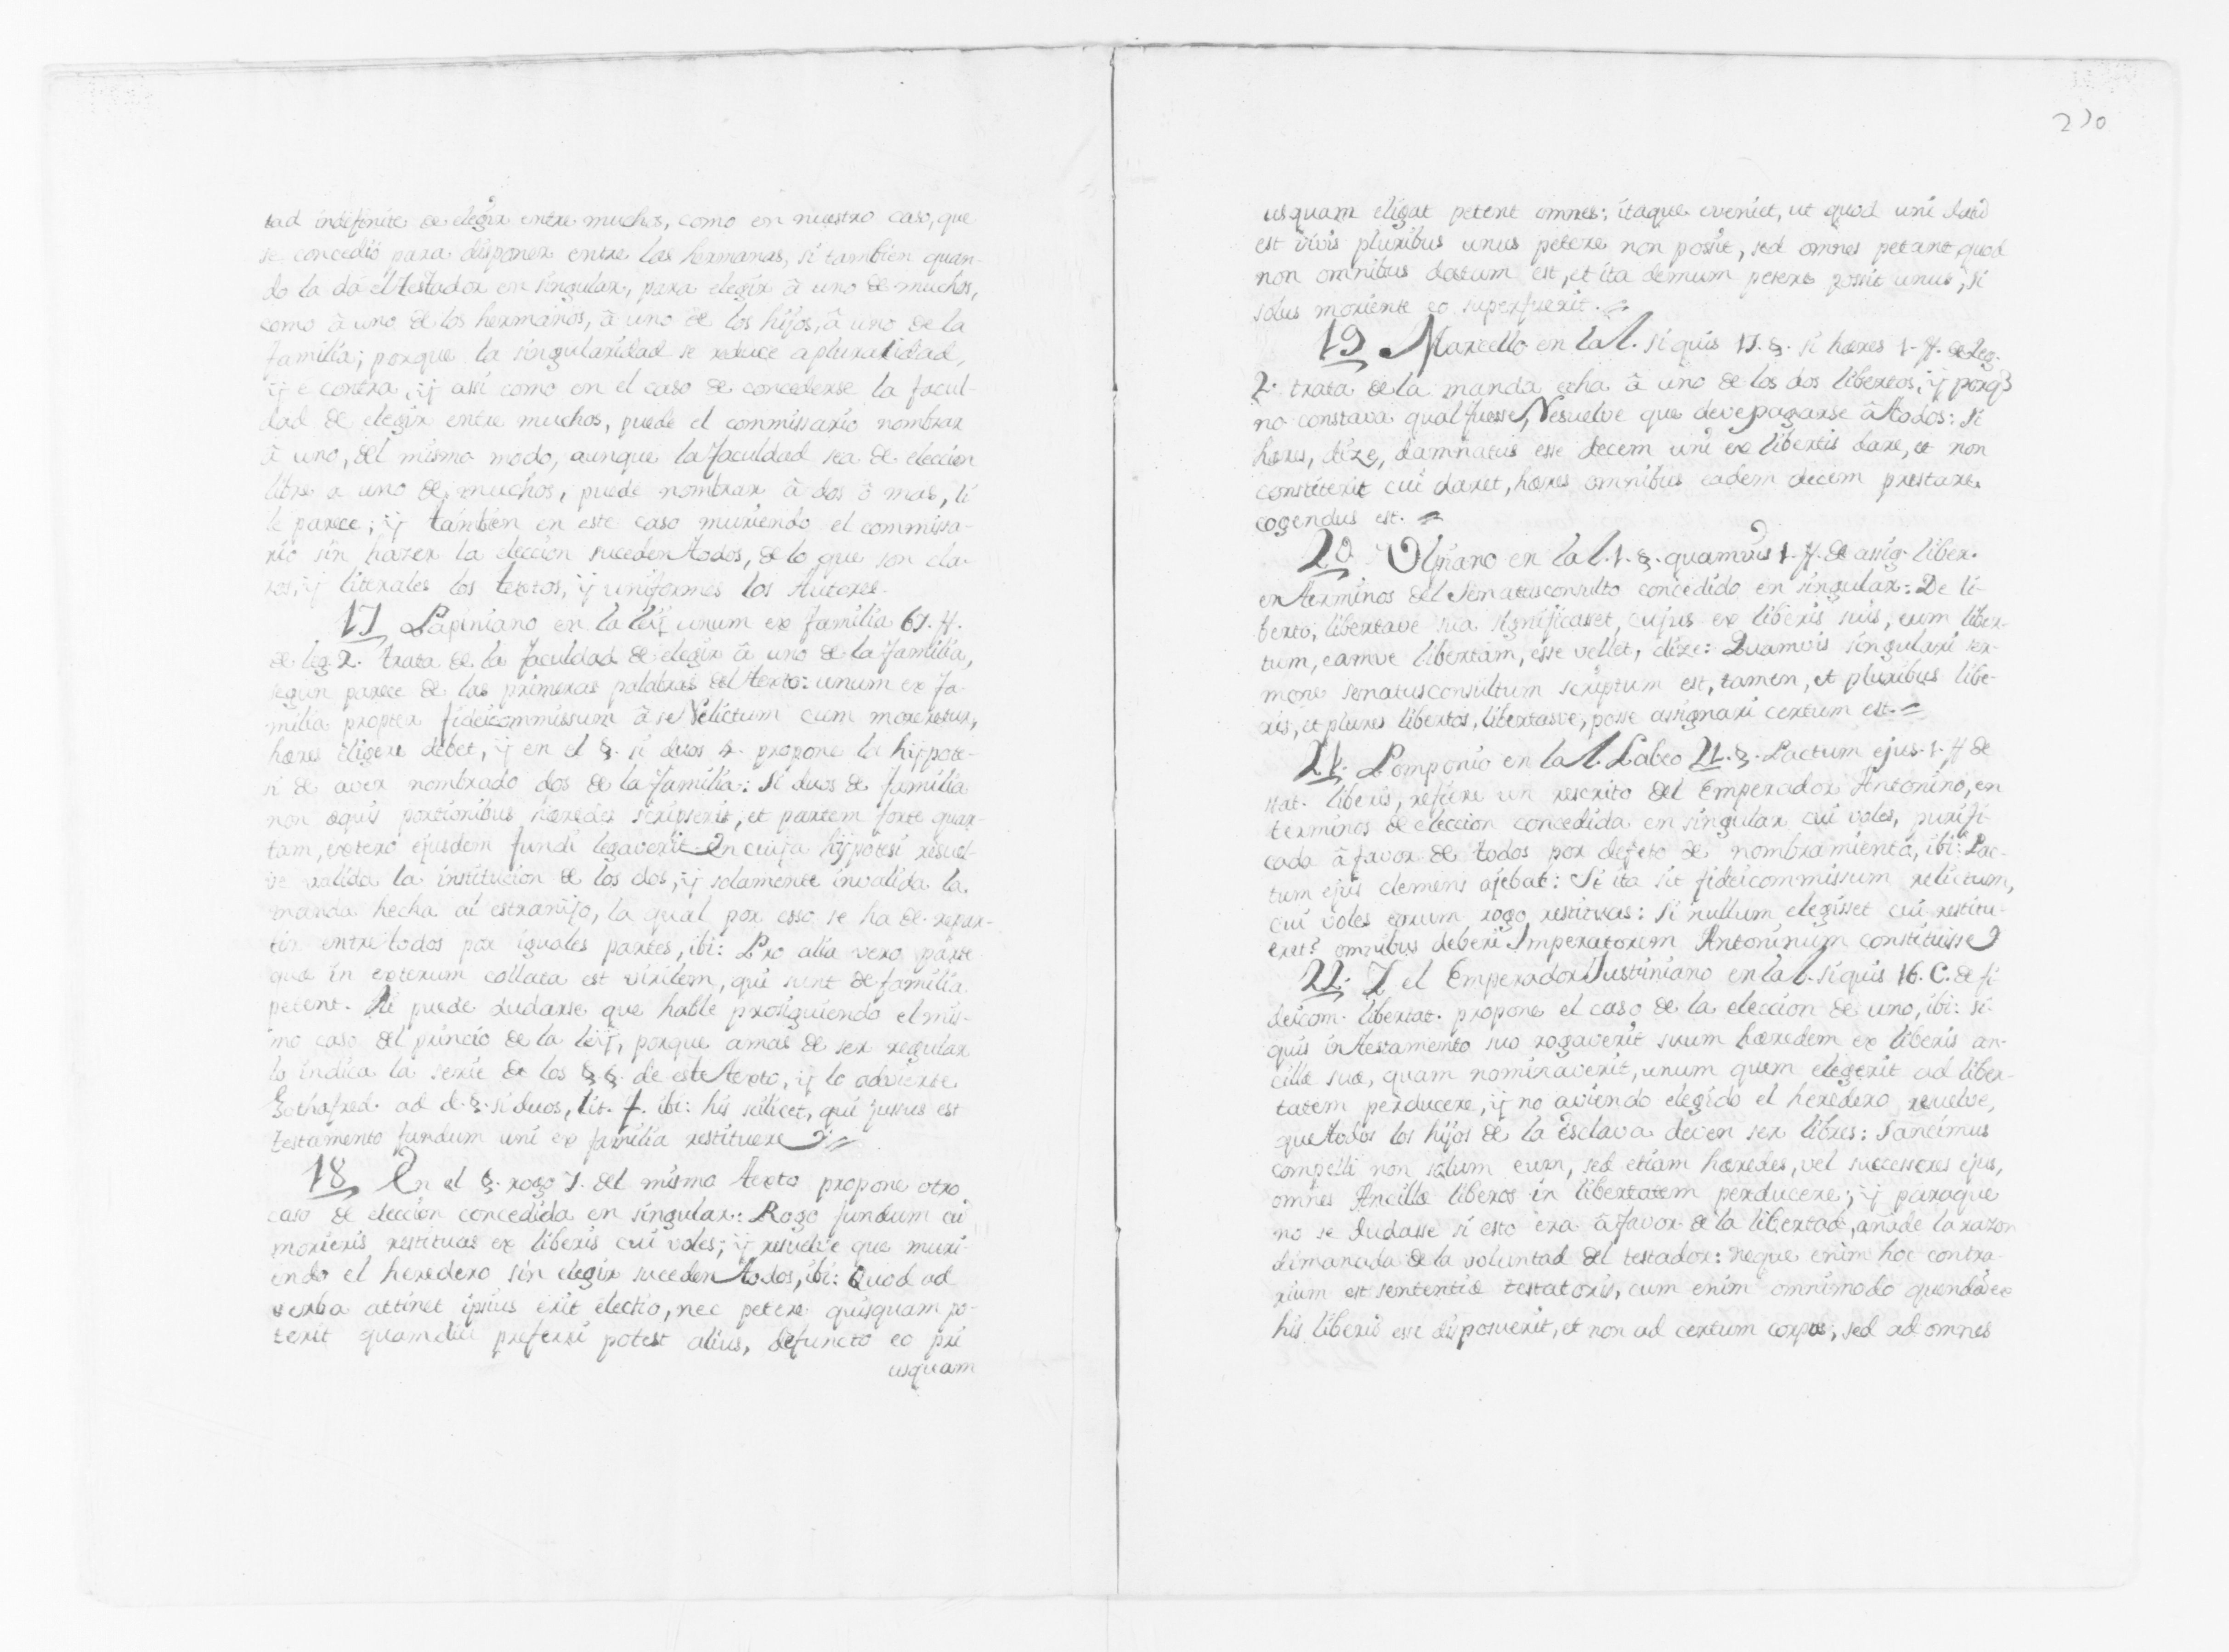 tad indefinite de elegir entre muchos, como en nuestro caso, que
se concedió para disponer entre las hermanas, si tambien quan-
do la dá el Testador en singular, para elegir â uno de muchos,
como â uno de los hermanos, â uno de los hijos, â uno de la
familia; porque la singularidad se reduce a pluralidad,
ÿ e contra, ÿ assi como en el caso de concederse la facul-
dad de elegir entre muchos, puede el commissario nombrar
â uno, del mismo modo, aunque la faculdad sea de eleccion
libre a uno de muchos, puede nombrar â dos ô mas, si
le parece; ÿ tambien en este caso muriendo el commissa-
rio sin hazer la eleccion suceden todos, de lo que son cla-
ros, ÿ literales los textos, ÿ uniformes los Autores.
17 Papiniano en la leÿ unum ex familia 67. ff.
de leg. 2. trata de la faculdad de elegir â uno de la familia,
segun parece de las primeras palabras del texto: unum ex fa-
milia propter fideicommissum â se relictum cum moreretur,
hæres eligere debet, ÿ en el §. si duos propone la hÿpote-
si de aver nombrado dos de la familia: Si duos de familia
non æquis portionibus hæredes scripserit, et partem forte quar-
tam, extero ejusdem fundi legaverit. En cuÿa hÿpotesi resuel-
ve valida la institucion de los dos, ÿ solamente invalida la
manda hecha al estranijo, la qual por esso se ha de repar-
tir entre todos por iguales partes, ibi: Pro alia vero parte
quæ in exterum collata est virilem, qui sunt de familia
petent. Ni puede dudarse que hable prosiguiendo el mis-
mo caso del princio de la leÿ, porque amas de ser regular
lo indica la serie de los §§. de este texto, ÿ lo advierte
Gothofred. ad d. §. si duos, lit. f. ibi: his scilicet, qui jussus est
testamento fundum uni ex familia restituere
18 En el §. rogo 7. del mismo texto propone otro
caso de eleccion concedida en singular: Rogo fundum cu
morieris restituas ex liberis cui voles; ÿ resuelve que muri-
endo el heredero sin elegir suceden todos, ibi: Quod ad
verba attinet ipsius erit electio, nec petere quisquam po-
terit quamdiu præferri potest alius, defuncto eo pri
usquam
230
usquam eligat petent omnes: itaque eveniet, ut quod uni datũ
est vivis pluribus unus petere non possit, sed omnes petant quod
non omnibus datum est, et ita demum petere possit unus, si
solus moriente eo superfuerit.
19 Marcello en la l. si quis 17. §. si hæres 1. ff. de leg.
2. trata de la manda echa â uno de los dos libertos, ÿ porq̃
no constava qual fuesse, resuelve que deve pagarse â todos: Si
hæres, dize, damnatus esse decem uni ex libertis dare, et non
constiterit cui daret, hæres omnibus eadem decem prestare
cogendus est.
20 Ulpiano en la l. 1. §. quamvis 1. ff. de assig. liber.
en terminos del Senatusconsulto concedido en singular: De li-
berto, libertave sua significasset, cujus ex liberis suis, eum liber-
tum, eamve libertam, esse vellet, dize: Quamvis singulari ser-
mone senatusconsultum scriptum est, tamen, et pluribus libe-
ris, et plures libertos, libertasve, posse assignari certum est.
21. Pomponio en la l. Labeo 21. §. Pactum ejus. 1. ff de
stat. liberis, refiere un rescrito del Emperador Antonino, en
terminos de eleccion concedida en singular cui voles, purifi-
cada â favor de todos por defeto de nombramiento, ibi: Pac-
tum ejus clemens ajebat: Si ita sit fideicommissum relictum,
cui voles eorum rogo restituas: Si nullum elegisset cui restitu-
eret? omnibus deberi Imperatorem Antoninum constituisse
22. I el Emperador Justiniano en la l. si quis 16. C. de fi
deicom. libertat. propone el caso de la eleccion de uno, ibi: si
quis in testamento suo rogaverit suum hæredem ex liberis an-
cillæ suæ, quam nominaverit, unum quem elegerit ad liber-
tatem perducere, ÿ no aviendo elegido el heredero resuelve,
que todos los hijos de la esclava deven ser libres: Sancimus
compelli non solum eum, sed etiam hæredes, vel successores ejus,
omnes Ancillæ liberos in libertatem perducere; ÿ paraque
no se dudasse si esto era â favor de la libertad, añade la razon
dimanada de la voluntad del testador: neque enim hoc contra-
rium est sententiæ testatoris, cum enim omnimodo quendã ex
his liberis esse disposuerit, et non ad certum corpus, sed ad omnes